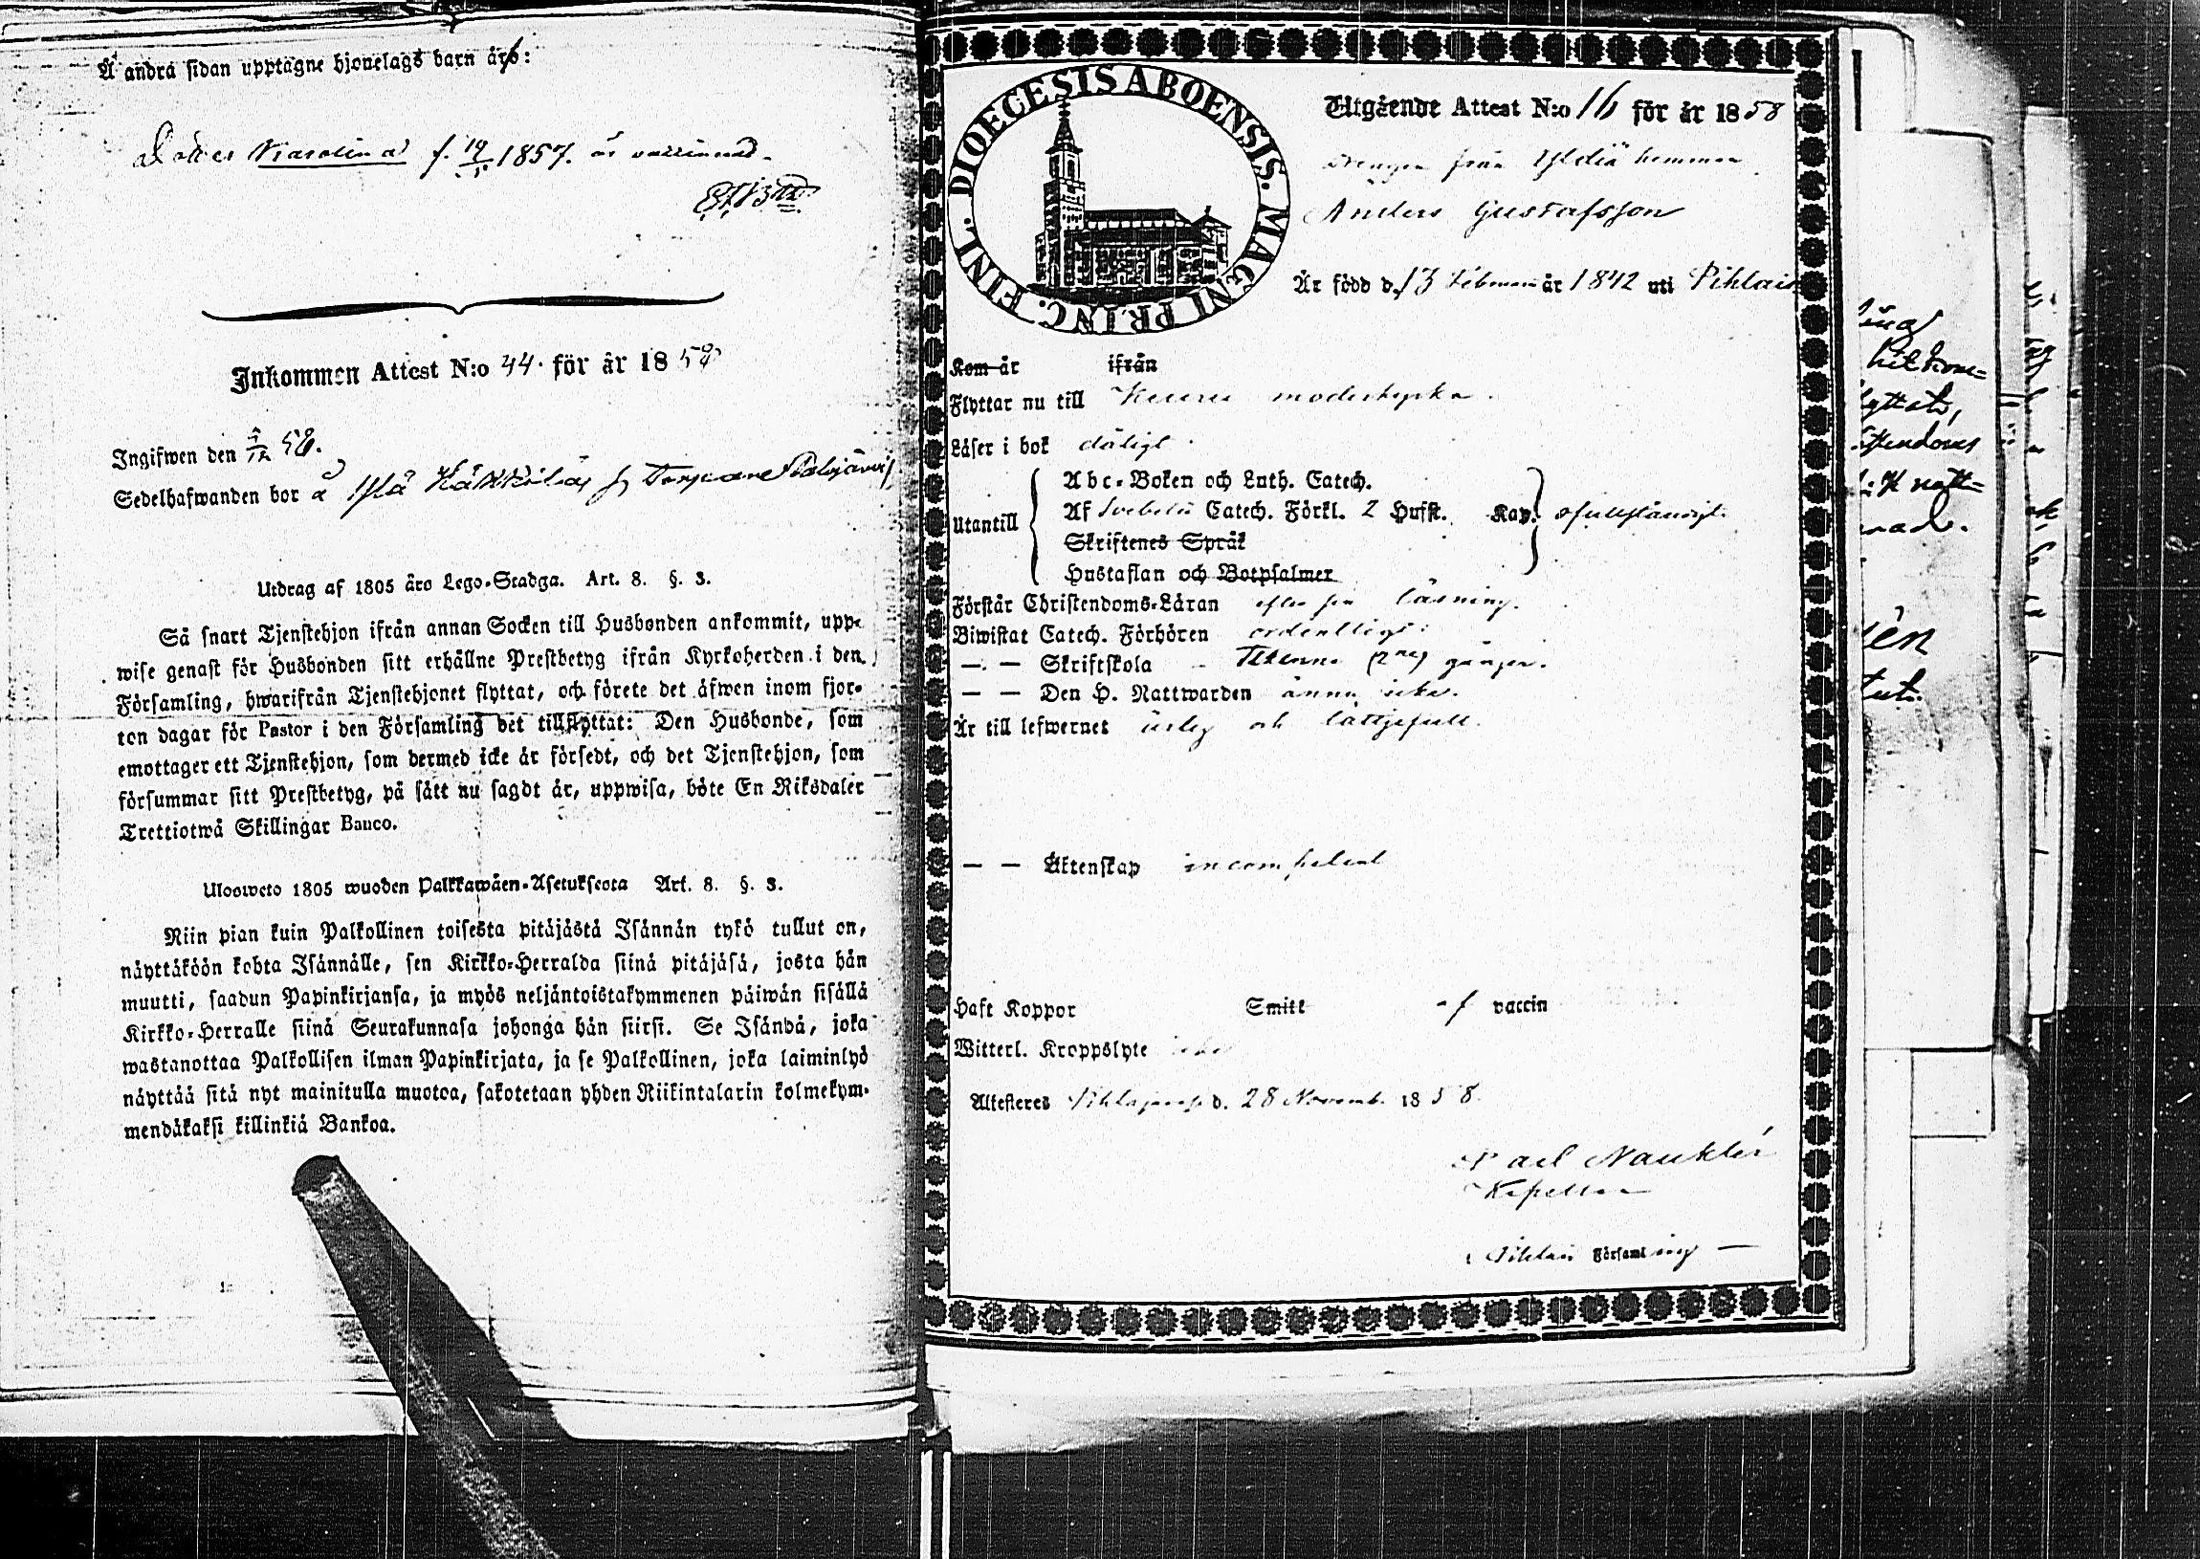 Å andra sidan upptagne hjonelags barn är:
Dotter Karolina f. 19/1. 1857. är vaccinerad.
Inkommen Attest N:o 44. för år 1858
Ingifwen den 58.
Sedelhafwanden bor å
Utdrag af 1805 åro Lego-Stadga. Art. 8. §. 3.
Så snart Tjenstehjon ifrån annan Socken till Husbonden ankommit, upp-
wise genast för Husbonden sitt erhållne Prestbetyg ifrån Kyrkoherden i den
Församling, hwarifrån Tjenstehjonet flyttat, och förete det äfwen inom fjor-
ton dagar för Pastor i den Församling det tillflyttat: Den Husbonde, som
emottager ett Tjenstehjon, som dermed icke är försedt, och det Tjenstehjon, som
försummar sitt Prestbetyg, på sätt nu sagdt är, uppwisa, böte En Riksdaler
Trettiotwå Skillingar Banco.
Ulosweto 1805 wuoden Palkkawäen-Asetuksesta Art. 8. §. 3.
Niin pian kuin Palkollinen toisesta pitäjästä Isännän tykö tullut on,
näyttäköön kohta Isännälle, sen Kirkko-Herralda siinä pitäjäsä, josta hän
muutti, saadun Papinkirjansa, ja myös neljäntoistakymmenen päiwän sisällä
Kirkko-Herralle siinä Seurakunnasa johonga hän siirsi. Se Isändä, joka
wastanottaa Palkollisen ilman Papinkirjata, ja se Palkollinen, joka laiminlyö
näyttää sitä nyt mainitulla muotoa, sakotetaan yhden Riikintalarin kolmekym-
mendäkaksi killinkiä Bankoa.
DIOECESIS ABOENSIS. MAGNI PRINC. FINL.
Utgående Attest N:o 16 för år 1858
Drengen från hemman
Anders Gustafsson
Är född d. 13 Februari år 1842 uti Pihlais
Kom år ifrån
Flyttar nu till Keuru moderkyrka.
Läser i bok dåligt.
Utantill
Abc-Boken och Luth. Catech.
Af Svebelii Catech. Förkl. 2 Hufst. Kap. ofullständigt.
Skriftenes Språk
Hustaflan och Botpsalmer
Förstår Christendoms-Läran efter sin läsning.
Biwistat Catech. Förhören ordentligt.
— — Skriftskola gånger.
— — Den H. Nattwarden ännu icke.
Är till lefwernet ärlig och lättjefull.
— — Äktenskap incompetent
Haft Koppor Smitt af vaccin
Witterl. Kroppslyte icke
Attesteres d. 28 Novemb. 1858.
Karl Nauklér
Kapellan
Pihlais Församling —